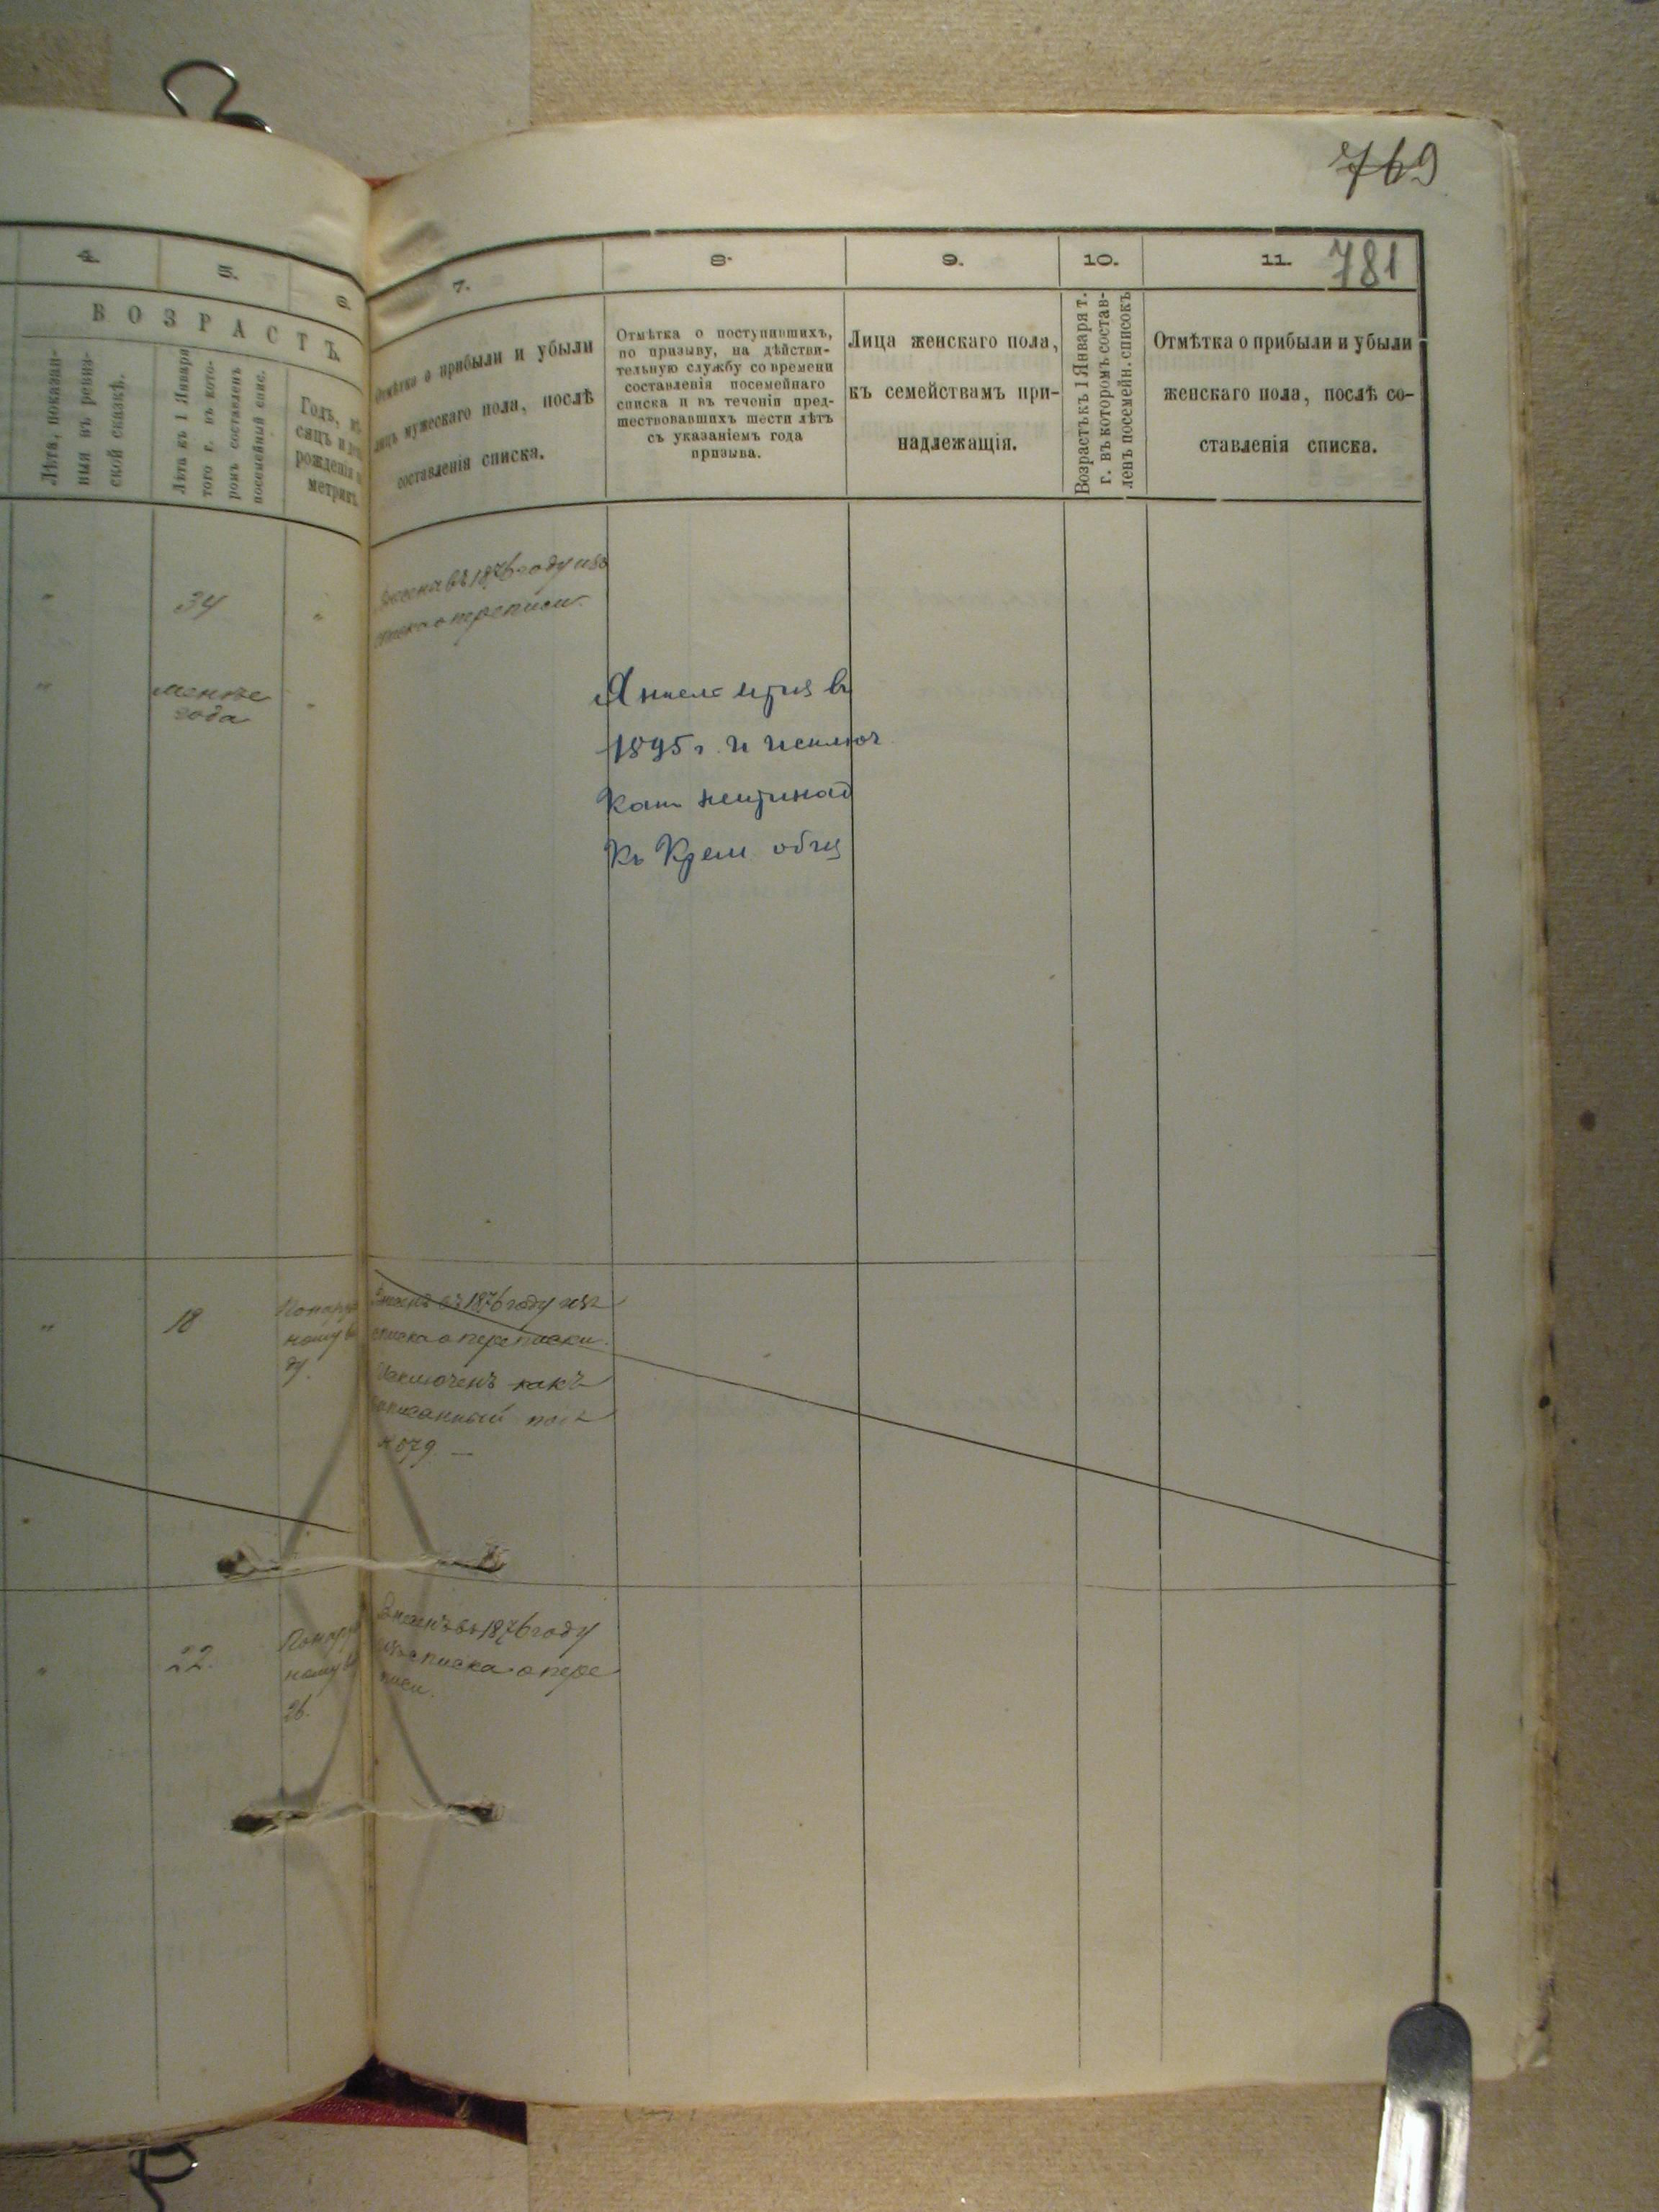 769
781
4.
5.
6.
7.
8.
9.
10.
11.
ВОЗРАСТЪ.
Лѣта, показан-
ныя въ ревиз-
ской сказкѣ.
Лѣта къ 1 Января
того г. въ кото-
ромъ составленъ
посемейный спис.
Годъ, мѣ-
сяцъ и день
рожденія по
метрик.
Отмѣтка о прибыли и убыли
лицъ мужескаго пола, послѣ
составленія списка.
Отмѣтка о поступившихъ,
по призыву, на дѣйстви-
тельную службу со времени
составленія посемейнаго
списка и въ теченіи пред-
шествовавшихъ шести лѣтъ
съ указаніемъ года
призыва.
Лица женскаго пола,
къ семействамъ при-
надлежащія.
Возрастъ къ 1 Января т.
г. въ которомъ состав-
ленъ посемейн. списокъ
Отмѣтка о прибыли и убыли
женскаго пола, послѣ со-
ставленія списка.
34
въ 1876 году изъ
списка о переписи.
менѣе
года
въ
1895 г. и исключ
Къ Крем. общ
18
Понаруж
ному ви
ду.
Внесенъ въ 1876 году изъ
списка о переписки.
Исключенъ какъ
записанный подъ
№ 579. —
22.
Понаруж
ному ви
Внесенъ въ 1876 году
изъ списка о пере
писи.